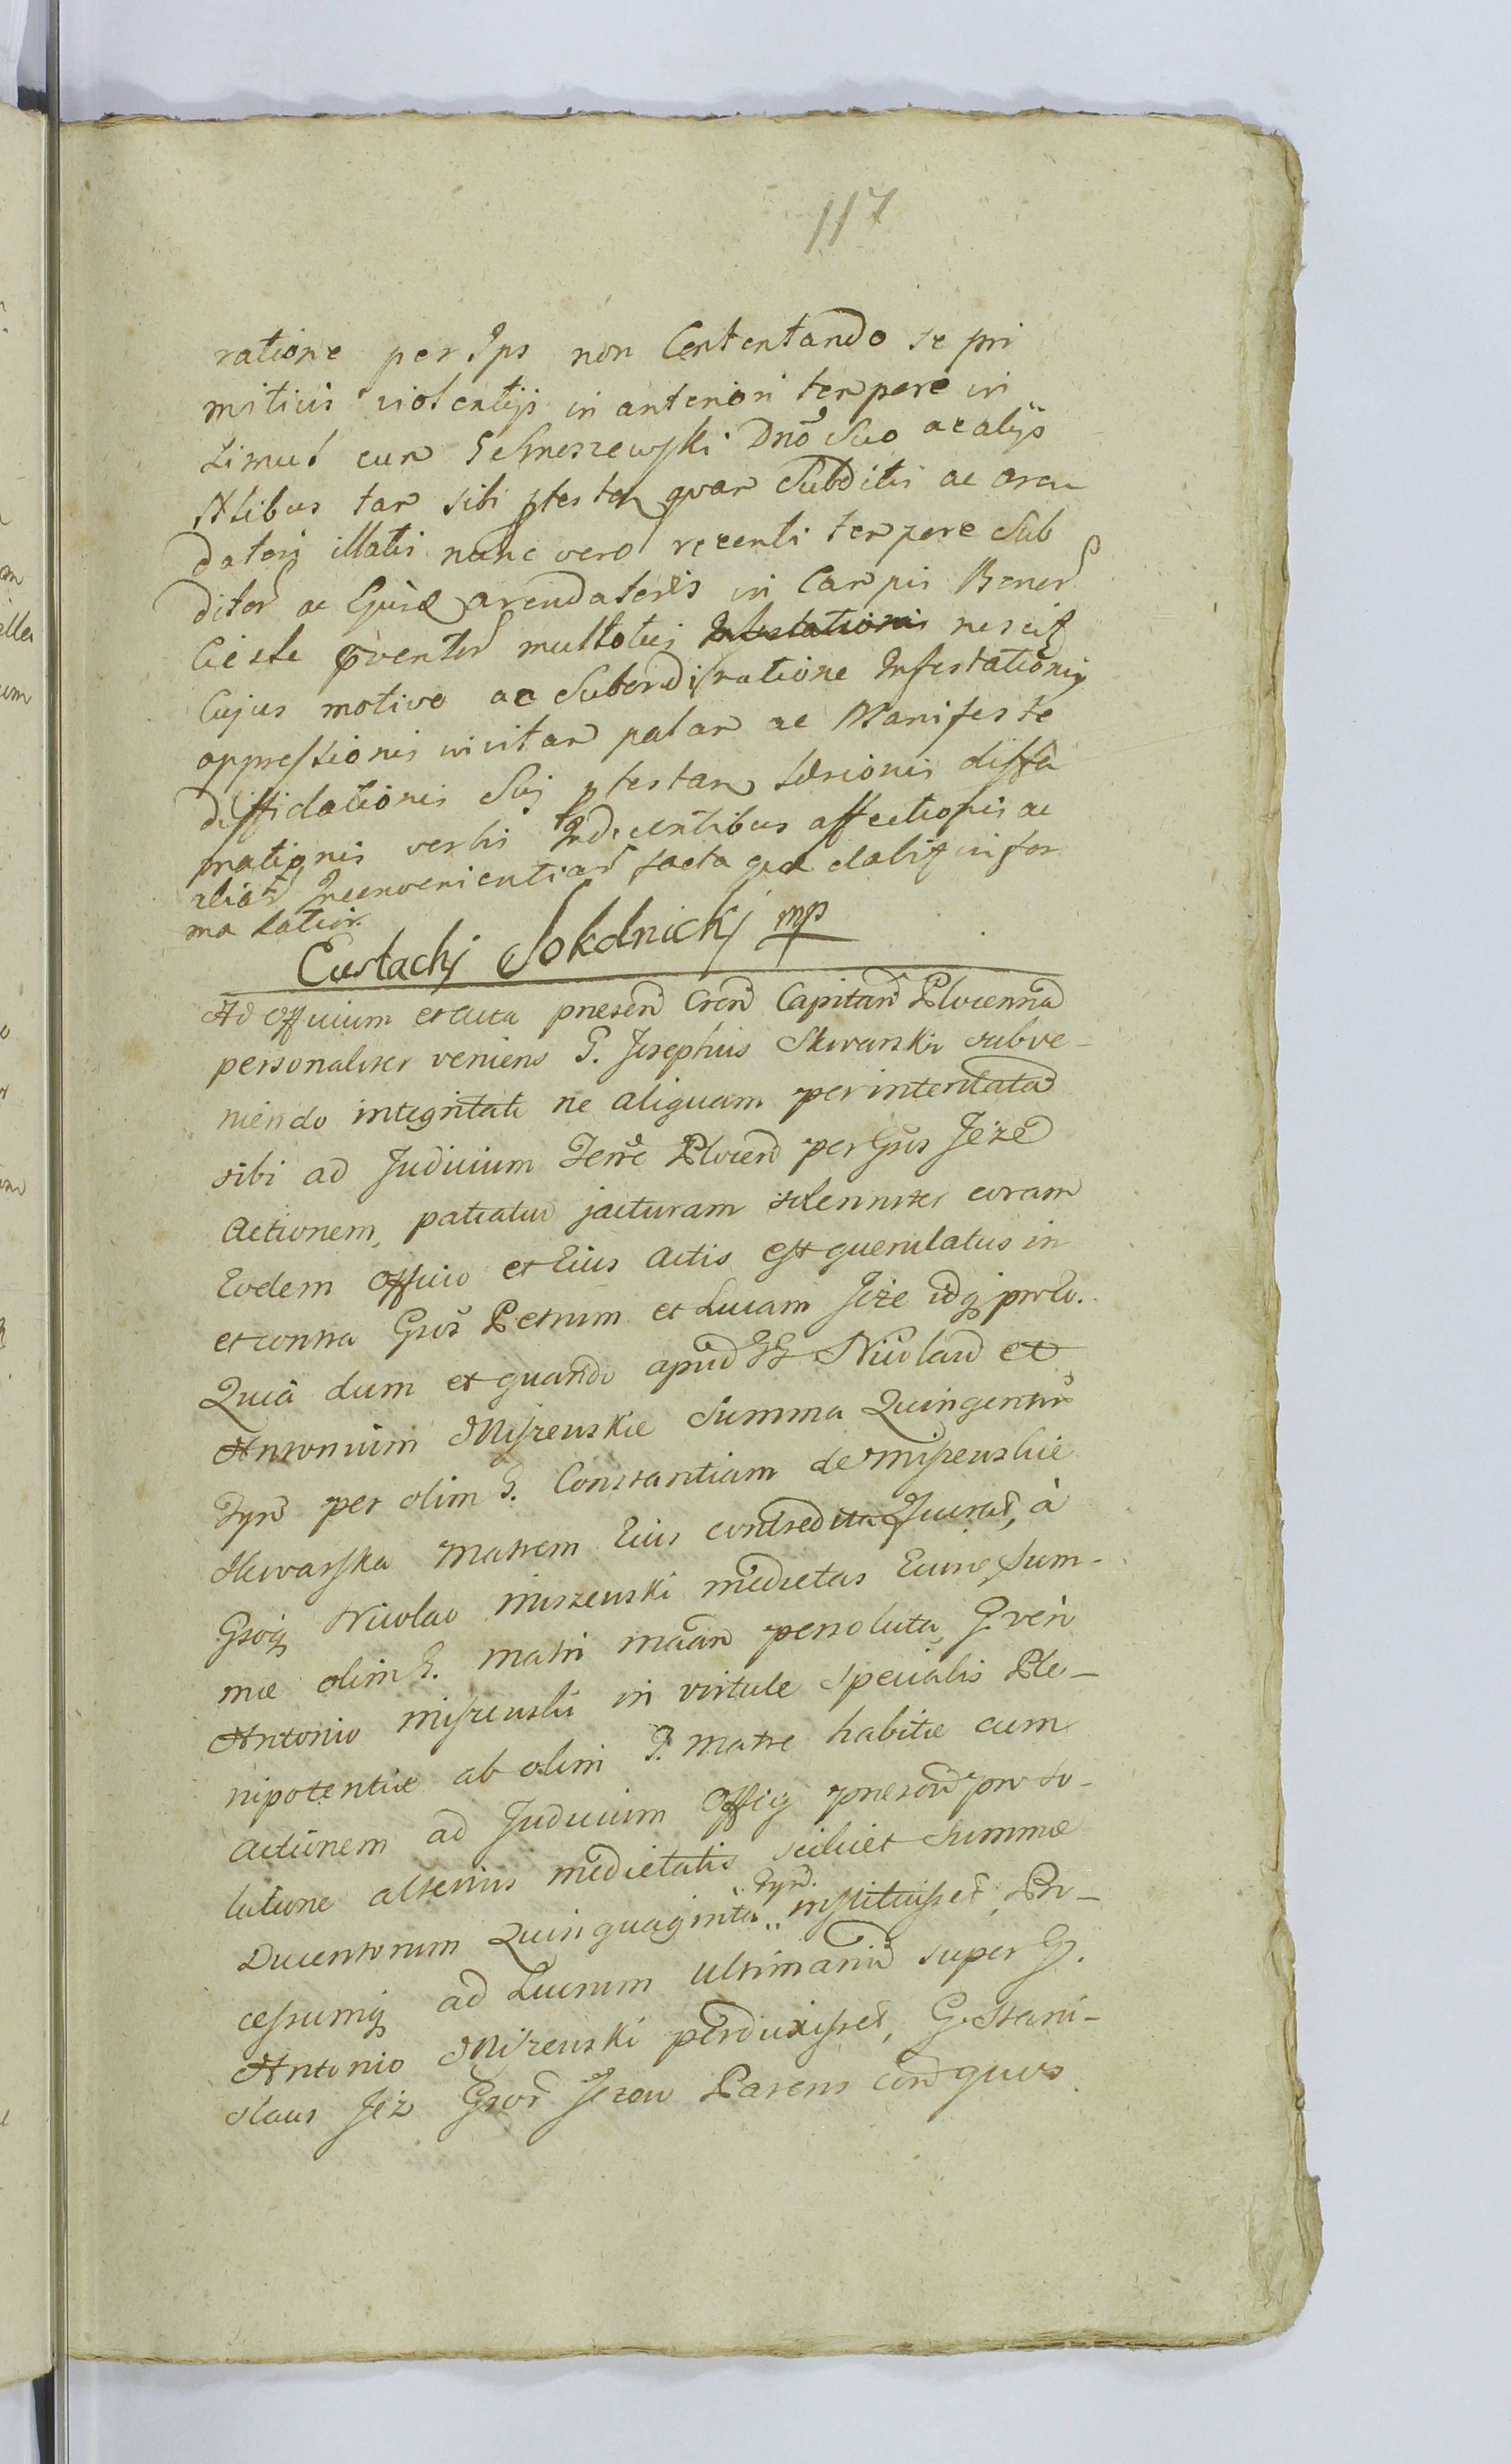 117
ratione per Ips non Contentando se pri
mitivis violentijs in anteriori tempore in
simul cum Schneszewski Dno Suo ac alijs
Nlibus tam sibi ptestan quam Subditis ac aren
datorj illatis nunc vero recenti tempore Sub
ditos ac Ejusd arendatoris in Campis Bonor
Cieste pventos multoties Infestationis nescit
Cujus motivo ac Subordinatione Infestationis
oppressionis invitam palam ac Manifeste
diffidationis Sui ptestan laesionis diffa
mationis verbis Indecentibus affectionis ac
aliar Inconvenientiar facta quae dabit in for
ma latior.
Eustachj Sokolnickj mp
Ad officium et acta praesen Cren Capitan Plocen
personaliter veniens G. Josephus Skwarski subve-
niendo integritati ne aliquam per intentatam
sibi ad Judicium Terre Plocen per Gsos Jeże
Actionem, patiatur jacturam solenniter coram
Eodem Officio et Eius Actis est querulatus in
et contra Gsos Petrum et Lucam Jeże idq pro Eo.
Quia dum et quando apud GG Nicolaum et
Antonium Miszewskie Summa Quingentor
Tynf per olim G. Constantiam de Miszewskie
Skwarska Matrem Eius contradita fuerat, à
Gsoq Nicolao Miszewski medietas Eiusd Sum-
mae olim G. matri persoluta, G. vero
Antonio Miszewski in virtute specialis Ple-
nipotentiae ab olim G. Matre habitae cum
Actionem ad Judicium Offij praesen pro so-
lutione alterius medietatis scilicet Summae
Ducentorum Quinquaginta Tynf. instituisset, Pro-
cessumq ad Lucrum ultimarium super G.
Antonio Miszewski perduxisset, G. Stani-
slaus Jeż Gsor Jezow Parens quos